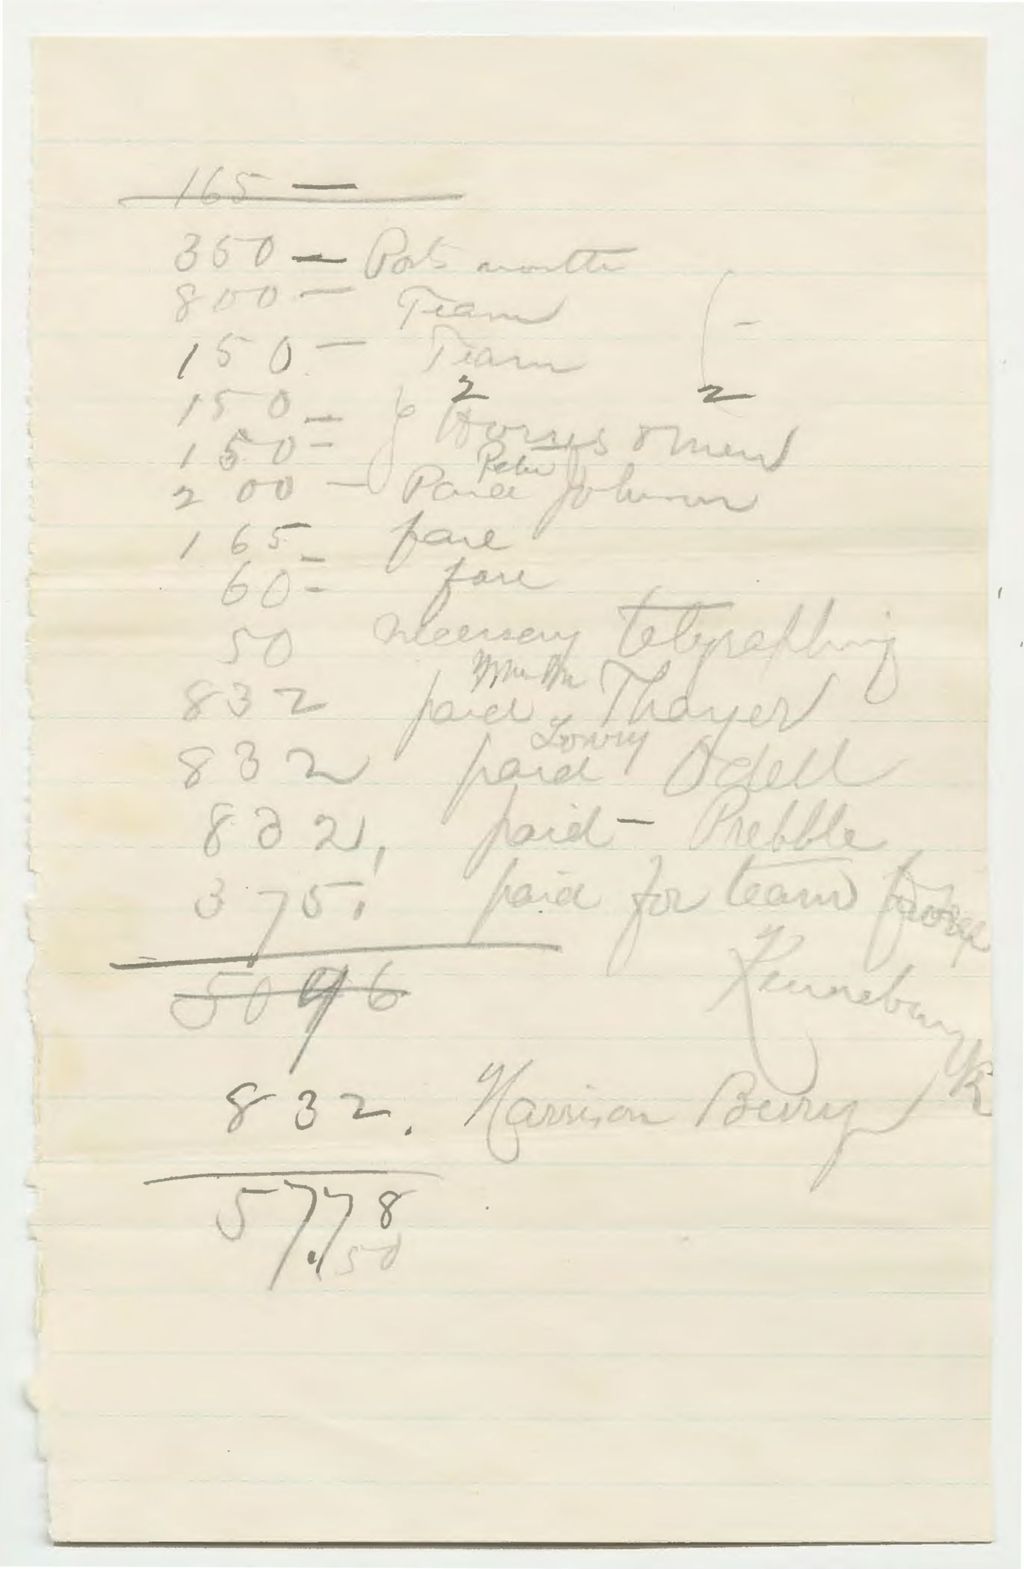 165 —
350 — Portsmouth
800 — Team
150 — Team
150 — 2
150 = Horses & men 2
200 — Paid Peter Johnson
165 — fare
60 = fare
50 necessary telegraphing
832 paid Thayer
832 paid Lowry Odell
832, paid — Prebble
375. paid for team from
Kennebunk
5046
832. Harrison Berry
57.78
.50